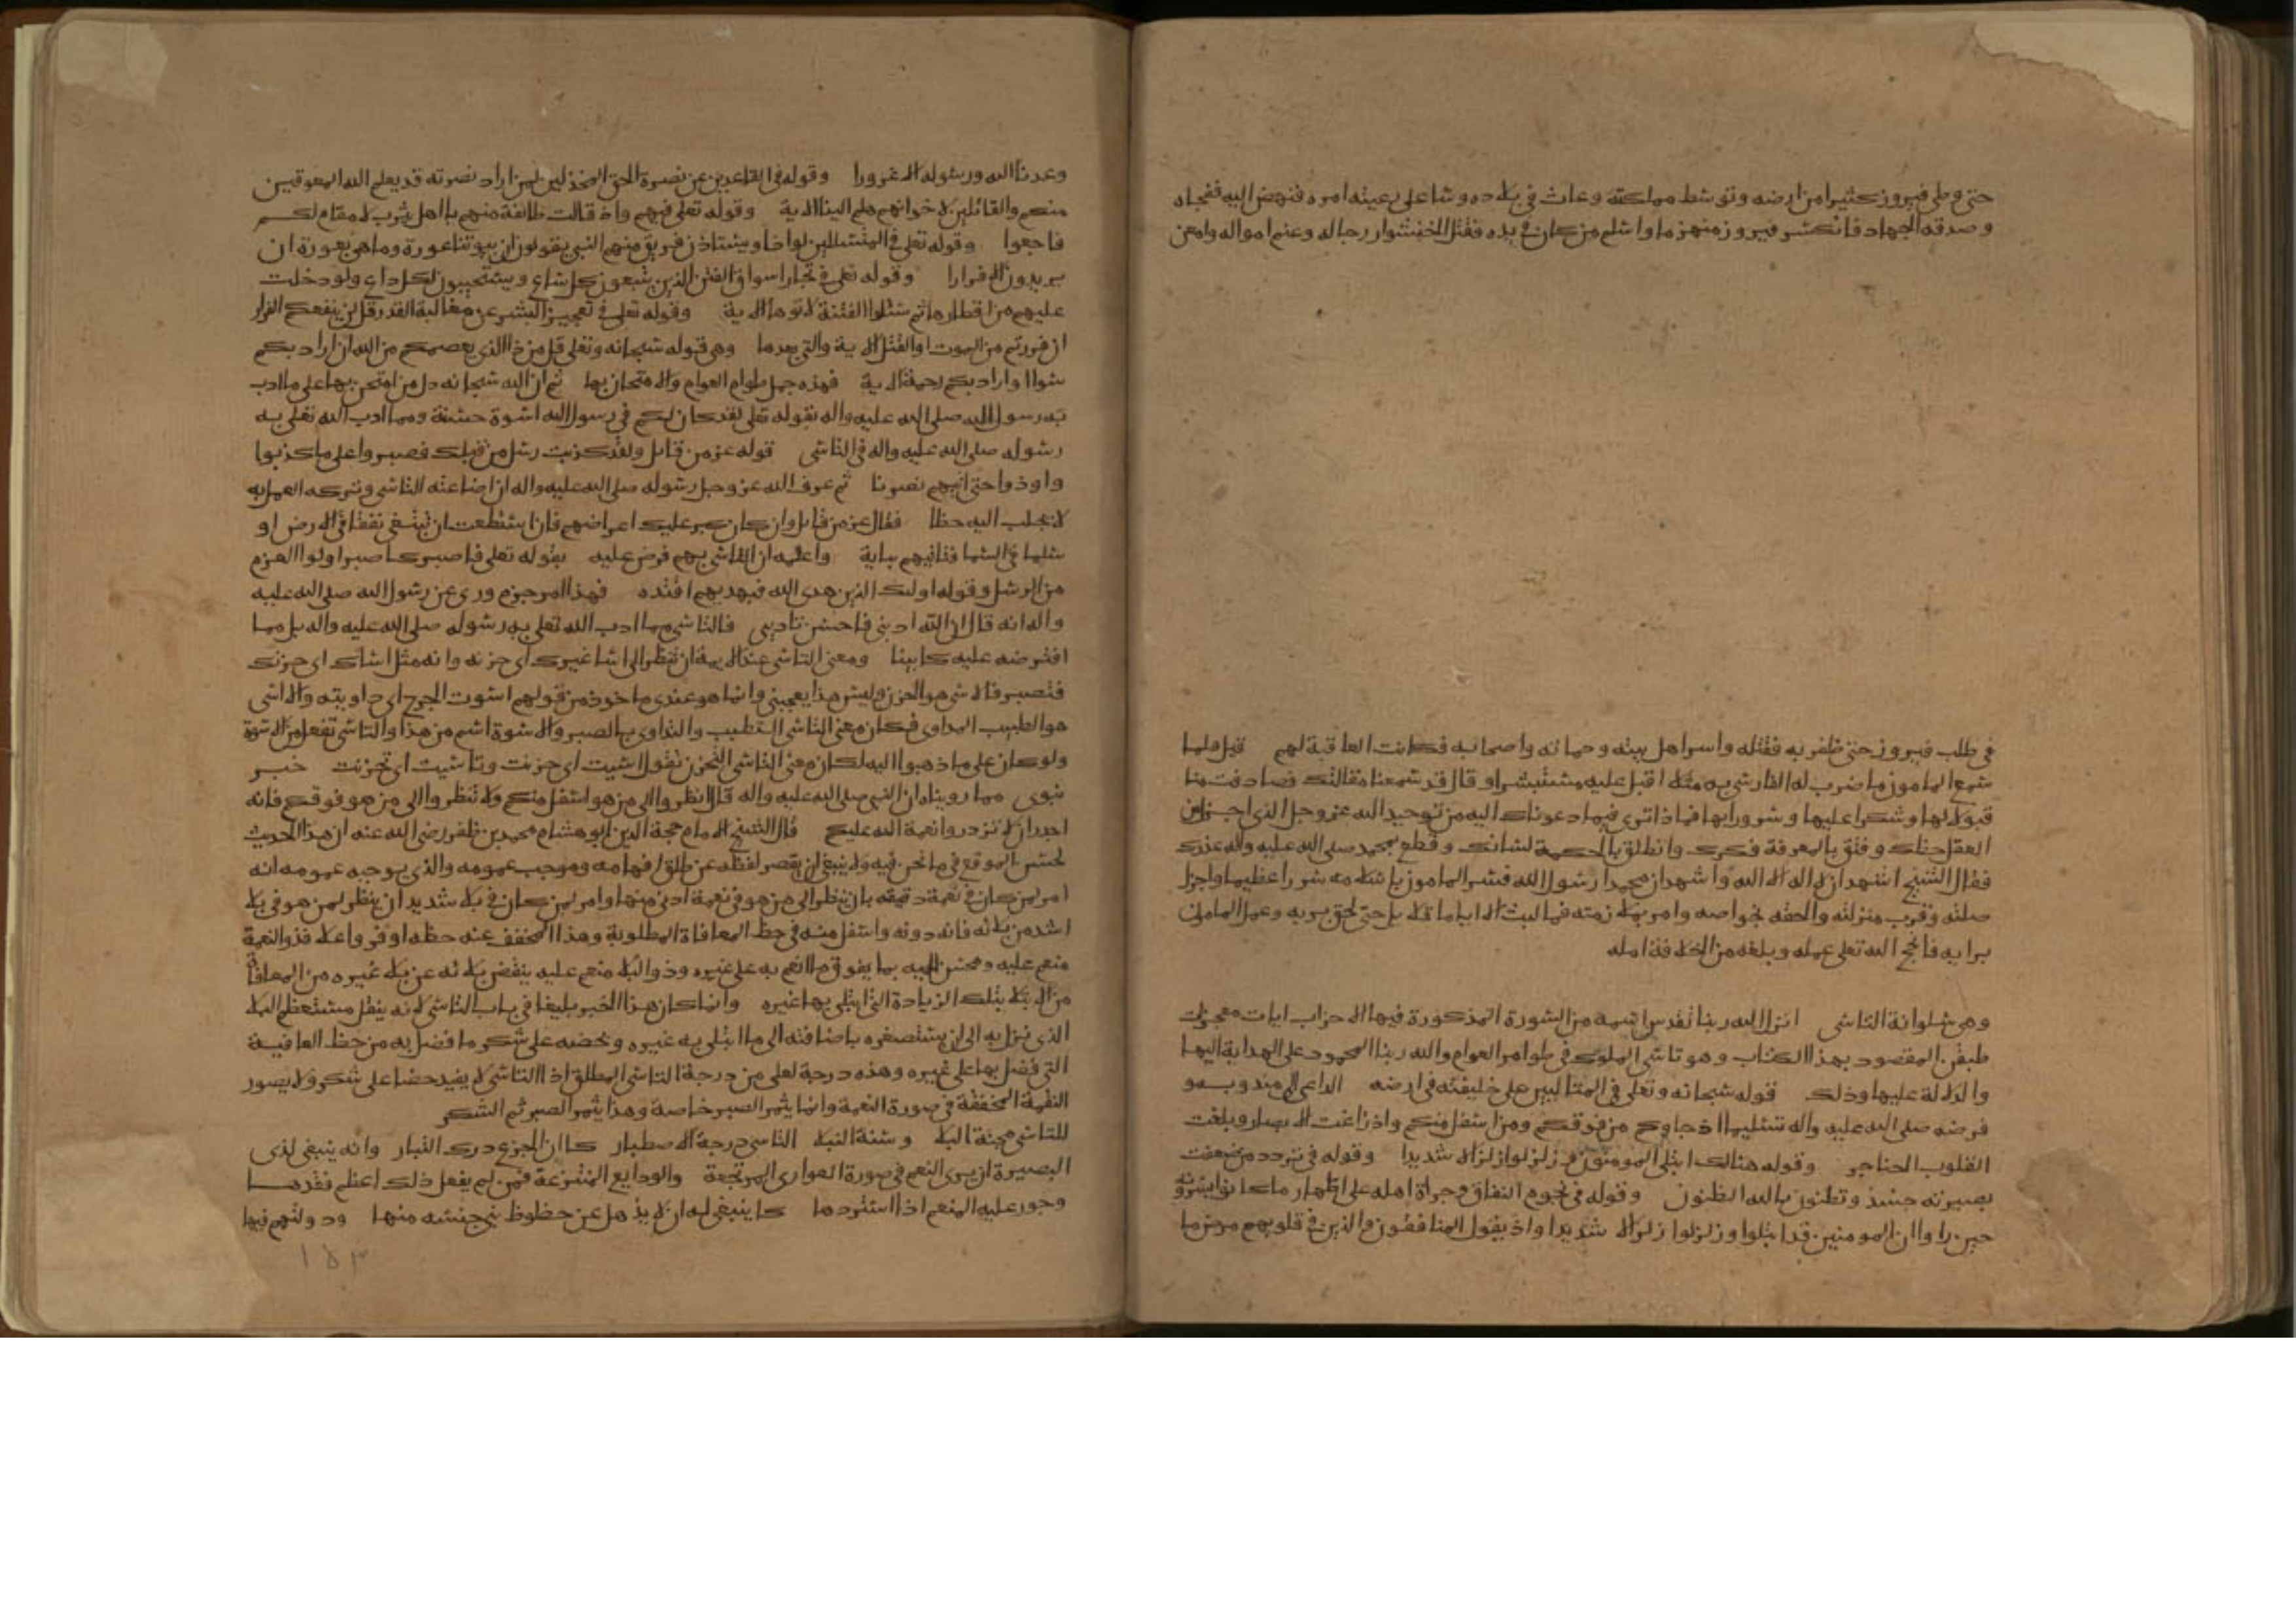 حتى وطى فيروز كثيرا من ارضه وتوسط مملكته وعاث في بلاده وشا على رعيته امره فنهض اليه ففجاه
وصدقه الجهاد فانكسر فيروز منهزما واسلم من كان في يده فقتل الخنشوار رجاله وغنم امواله وامعن
في طلب فيروز حتى ظفر به فقتله واسر اهل بيته وحماته واصحابه فكانت العاقبة لهم قيل فلما
سمع المامون ما ضرب له الفارسي به مثله اقبل عليه مستبشرا و قال قد سمعنا مقالتك فصادفت منا
قبولا لها وشكرا عليها وسرورا بها فماذا ترى فيما دعوناك اليه من توحيد الله عز وجل الذي اجزل من
العقل حظك وفتق بالمعرفة فكرك وانطلق بالحكمة لسانك وقطع بمحمد صلى الله عليه واله عذرك
فقال الشيخ اشهد ان لا اله الا الله واشهد ان محمدا رسول الله فسر المامون باسلامه سرورا عظيما واجزل
صلته وقرب منزلته والحقه بخواصه وامر بملازمته فما لبث الا اياما قلايل حتى لحق بربه وعمل المامون
برايه فانجح الله تعلى عمله وبلغه من الخلافة امله
وهي سلوانة التاسي انزل الله ربنا تقدس اسمه من السورة المذكورة فيها الاحزاب ايات معجزات
طبقن المقصود بهذا الكتاب وهو تاسي الملوك في طوامر العوام والله ربنا المحمود على الهداية اليها
والدلالة عليها وذلك قوله سبحانه وتعلى في المتالبين على خليفته في ارضه الداعي الى مندوبه و
فرضه صلى الله عليه واله تسليما اذ جاوكم من فوقكم ومن اسفل منكم واذ زاغت الابصار وبلغت
القلوب الحناجر وقوله هنالك ابتلى المومنون وزلزلوا زلزالا شديدا وقوله في تردد من ضعفت
بصيرته حينئذ وتظنون بالله الظنون وقوله في نجوم النفاق وجراة اهله على اظهار ما كانوا يسرونه
حين راوا ان المومنين قد ابتلوا وزلزلوا زلزالا شديدا واذ يقول المنافقون والذين في قلوبهم مرض ما
وعدنا الله ورسوله الا غرورا وقوله في القاعدين عن نصرة الحق المخذلين لمن اراد نصرته قد يعلم الله المعوقين
منكم والقائلين لاخوانهم هلم الينا الاية وقوله تعلى فيهم واذ قالت طائفة منهم يا اهل يثرب لا مقام لكم
فارجعوا وقوله تعلى في المتسللين لواذا ويستاذن فريق منهم النبي يقولون ان بيوتنا عورة وما هي بعورة ان
يريدون الا فرارا وقوله تعلى في تجار اسواق الفتن الذين يتبعون كل شاع ويستجيبون لكل داع ولو دخلت
عليهم من اقطارها ثم سئلوا الفتنة لاتوها الاية وقوله تعلى في تعجيز البشر عن مغالبة القدر قل لن ينفعكم الفرار
ان فررتم من الموت او القتل الاية والتي بعدها وهي قوله سبحانه وتعلى قل من ذا الذي يعصمكم من الله ان اراد بكم
سوا او اراد بكم رحمة الاية فهذه جمل طوام العوام والامتحان بها ثم ان الله سبحانه دل من امتحن بها على ما ادب
به رسول الله صلى الله عليه واله بقوله تعلى لقد كان لكم في رسول الله اسوة حسنة ومما ادب الله تعلى به
رسوله صلى الله عليه واله في التاسي قوله عز من قائل ولقد كذبت رسل من قبلك فصبروا على ما كذبوا
واوذوا حتى اتيهم نصرنا ثم عرف الله عز وجل رسوله صلى الله عليه واله ان اضاعته التاسي وتركه العمل به
لا يجلب اليه حظا فقال عز من قائل وان كان كبر عليك اعراضهم فان استطعت ان تبتغي نفقا في الارض او
سلما في السما فتاتيهم باية واعلمه ان التاسي بهم فرض عليه بقوله تعلى فاصبر كما صبر اولوا العزم
من الرسل وقوله اولئك الذين هدى الله فبهديهم اقتده فهذا امر جزم وروي عن رسول الله صلى الله عليه
واله انه قال ان الله ادبني فاحسن تاديبي فالتاسي مما ادب الله تعلى به رسوله صلى الله عليه واله بل مما
افترضه عليه كما بينا ومعنى التاسي عند الايمة ان تنظر الى اسا غيرك اي حزنه وانه مثل اساك اي حزنك
فتصبر فالاسى هو الحزن وليس هذا يعجبني وانما هو عندي ماخوذ من قولهم اسوت الجرح اي داويته والاسي
هو الطبيب المداوي فكان معنى التاسي التطبب والتداوي بالصبر والاسوة اسم من هذا والتاسي تفعل من الاسوة
ولو كان على ما ذهبوا اليه لكان معنى التاسي التحزن تقول اسيت اي حزنت وتاسيت اي تحزنت خبر
نبوي مما رويناه ان النبي صلى الله عليه واله قال انظروا الى من هو اسفل منكم ولا تنظروا الى من هو فوقكم فانه
اجدر ان لا تزدروا نعمة الله عليكم قال الشيخ الامام حجة الدين ابو هشام محمد بن ظفر رضي الله عنه ان هذا الحديث
لحسن الموقع في ما نحن فيه ولا ينبغي ان يقصر لفظه عن طلق افهامه وموجب عمومه والذي يوجبه عمومه انه
امر لمن كان في نعمة دقيقه بان ينظر الى من هو في نعمة ادنى منها وامر لمن كان في بلاء شديد ان ينظر لمن هو في بلاء
اشد من بلائه فانه دونه واسفل منه في حظ المعافاة المطلوبة وهذا المخفف عنه حظه اوفر واعلا فذو النعمة
منعم عليه ومحسن اليه بما يفوق ما انعم به على غيره وذو البلاء منعم عليه بنقص بلائه عن بلاء غيره من المعافاة
من الابتلا بتلك الزيادة التي ابتلي بها غيره وانما كان هذا الخبر بليغا في باب التاسي لانه ينقل مستعظم البلا
الذي نزل به الى ان يستصغره باضافته الى ما ابتلي به غيره ونحضه على شكر ما فضل به من حظ العافية
التي فضل بها على غيره وهذه درجة اعلى من درجة التاسي المطلق اذ التاسي لا يفيد حضا على شكر ولا يصور
النقمة المخففة في صورة النعمة وانما يثمر الصبر خاصة وهذا يثمر الصبر ثم الشكر
للتاسي مجنة البلا وسنة النبلا التاسي درجة الاصطبار كما ان الجزع درك التبار وانه ينبغي لذي
البصيرة ان يرى النعم في صورة العواري المرتجعة والودايع المنتزعة فمن لم يفعل ذلك اعظم فقدها
وجور عليه المنعم اذا استردها كما ينبغي له ان لا يذهل عن حظوظ بني جنسه منها ودولتهم فيها
١٥٣